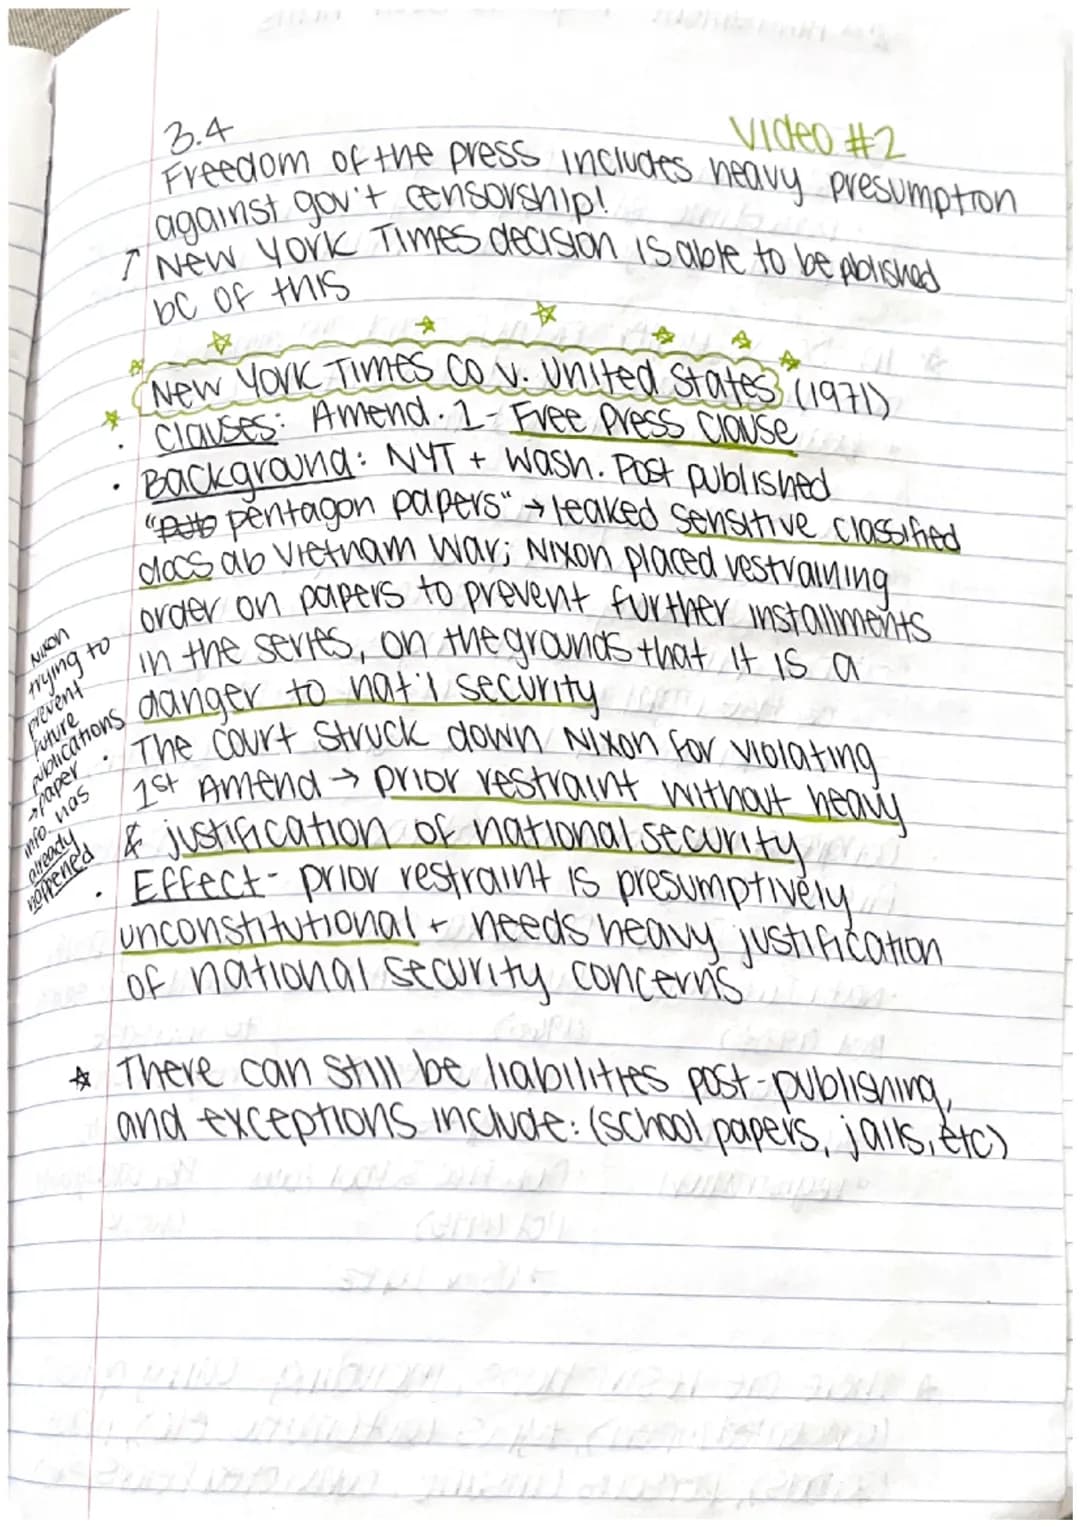 3.4
Video #2
Freedom of the press includes heavy presumption
against gov't censorship!
↑ New York Times decision is able to be pblished
bc of this
New York Times Co v. United States (1971)
• Clauses: Amend. 1 - Free Press Clause
• Background: NYT + Wash. Post published
"pentagon papers" → leaked sensitive classified
docs ab Vietnam War; Nixon placed restraining
order on papers to prevent further installments
in the series, on the grounds that it is a
danger to nat'l security
• The Court struck down Nixon for violating
1st Amend → prior restraint without heavy
& justification of national security
• Effect - prior restraint is presumptively
unconstitutional + needs heavy justification
of national security concerns
☆ There can still be liabilities post-publishing,
and exceptions include: (school papers, jails, etc)
Nixon
trying to
prevent
future
publications
→ paper
info was
already
happened